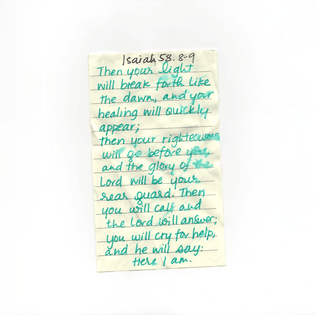 Isaiah 58:8-9
Then your light
will break forth like
the dawn, and your
healing will quickly
appear;
then your righteousness
will go before you,
and the glory of the
Lord will be your
rear guard. Then
you will call and
the Lord will answer;
you will cry for help,
and he will say:
Here I am.